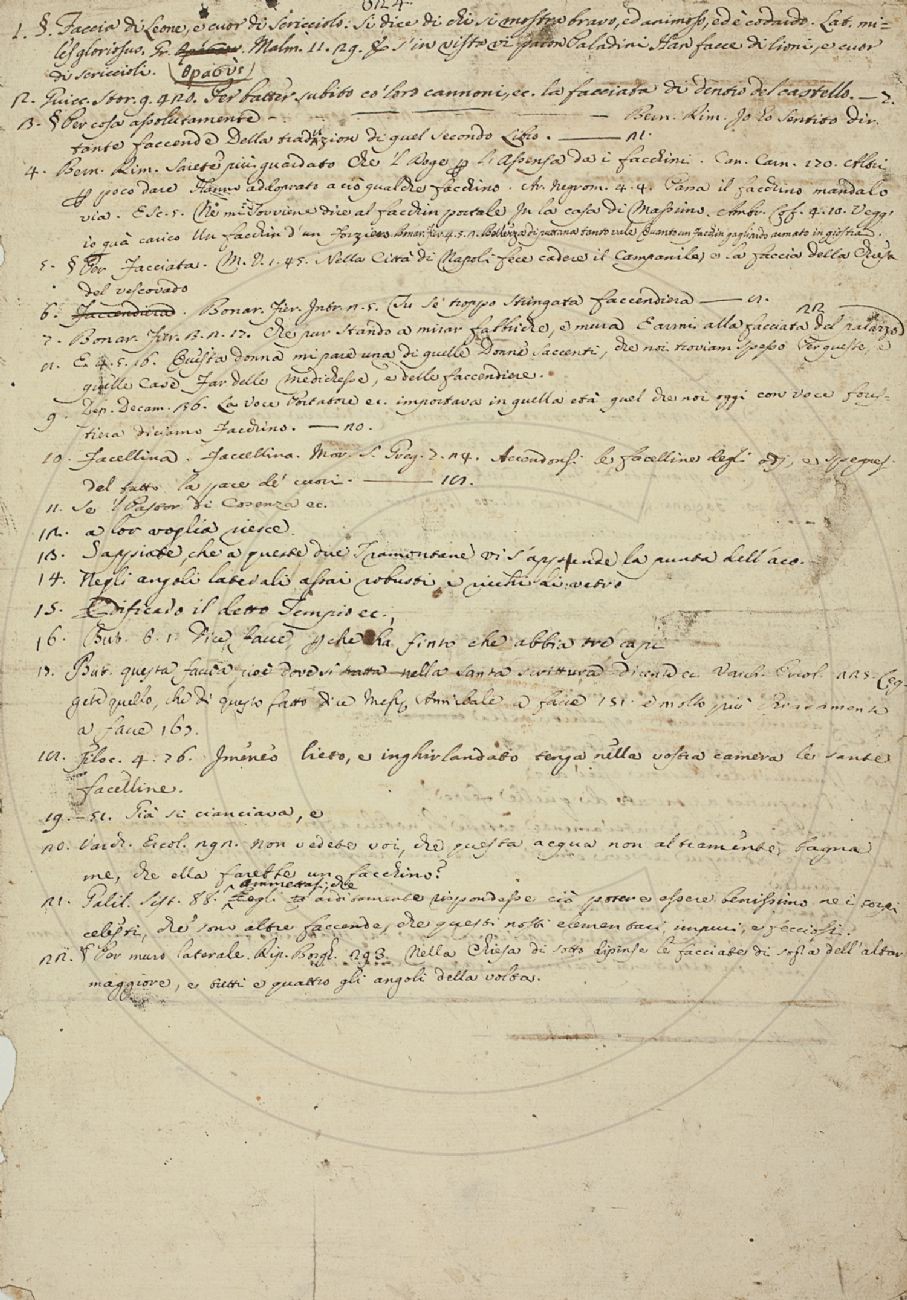 1. §. Faccia di Leone, e cuor di scricciolo. Si dice di chi si mostra bravo, ed animoso, ed è codardo. Lat. mi=
les gloriosus. Gr. θρασύς. Malm. 11. 29. S'in vista vi paion Paladini Han facce di lioni, e cuor
di scriccioli.
2. Guicc. Stor. 9. 420. Per batter subito co' loro cannoni, ec. la facciata di dentro del castello. — 7.
3. § Per cosa assolutamente — Bern. Rim. Io ho sentito dir
tante faccende Della traduzion di quel secondo Libro. — 21.
4. Bern. Rim. Sarete più guardato che 'l Doge per l' Ascensa da i facchini. Can. Carn. 170. Altri
per poco dare Hanno adoprato a ciò qualche facchino. Ar. Negrom. 4. 4. Paga il facchino mandalo
via. E sc. 5. Nè mi sovviene dire al facchin portale In la casa di Massimo. Ambr. Cof. 4. 10. Vegg'
io quà carico Un facchin d'un forziero. Bonar. Fier. 4. 5. 2. Bellezza di puttana tanto vale Quanto un facchin gagliardo armato in giostra.
5. § Per Facciata. M. V. 1. 45. Nella Città di Napoli fece cadere il Campanile, e la faccia della Chiesa
del vescovado
6. Faccendiera. Bonar. Fier. Intr. 2. 5. Tu se' troppo stringata faccendiera — 8.
7. Bonar. Fier. 3. 2. 17. Che pur stando a mirar fabbriche, e mura E armi alla facciata del palazzo — 22
8. E 4. 5. 16. Questa donna mi pare una di quelle Donne saccenti, che noi troviam spesso Per queste, e
quelle case Far delle medichesse, e delle faccendiere.
9. Dep. Decam. 136. La voce Portatore ec. importava in quella età quel che noi oggi con voce fores=
tiera diciamo Facchino. — 20.
10. Facellina. Faccellina. Mor. S. Greg. 7. 24. Accendonsi le facelline degli odj, e spegnesi
del tutto la pace de' cuori. — 18.
11. Se 'l Pastor di Cosenza ec.
12. a lor voglia riesce
13. Sappiate, che a queste due Tramontane vi s'apprende la punta dell'aco.
14. Negli angoli laterali assai robusti, e ricchi di vetro
15. Edificado il detto Tempio ec.,
16. But. 6. 1. Dice face, perchè ha finto che abbia tre capi
17. But. questa faccia, cioè dove si tratta nella santa scrittura dicente ec. Varch. Ercol. 225. Leg=
gete quello, che di questo fatto dice Messer Annibale a facce 151. e molto più chiaramente
a facce 167.
18. Filoc. 4. 76. Imeneo lieto, e inghirlandato tenga nella vostra camera le sante
facelline.
19. — 51. Fia si cianciava, e
20. Varch. Ercol. 292. non vedete voi, che questa acqua non altramente bagna
me, che ella farebbe un facchino?
21. Galil. Sist. 88. Egli arditamente rispondesse ciò potere essere benissimo ne i corpi
ammettasi, che
celesti, che son altre faccende, che questi nostri elementari, impuri, e fecciosi.
22. § Per muro laterale. Rip. Borgh. 293. Nella Chiesa di sotto dipinse le facciate di sopra dell'altar
maggiore, e tutti e quattro gli angoli della volta.